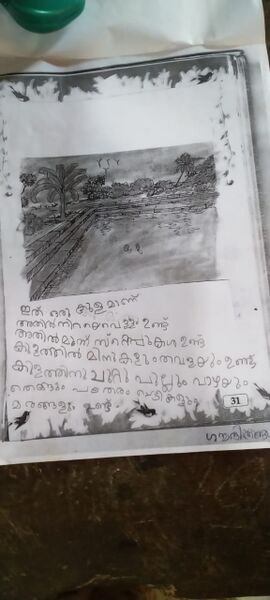 ഇത് ഒരു കുളമാണ്
അതിൽ നിറയെ വെള്ളം ഉണ്ട്
അതിൽ മൂന്ന് സ്റ്റെപ്പുകൾ ഉണ്ട്
കുളത്തിൽ മീനുകളും തവളയും ഉണ്ട്
കുളത്തിനു ചുറ്റും പുല്ലും വാഴയും
തെങ്ങും പലതരം ചെടികളും
മരങ്ങളും ഉണ്ട്
31